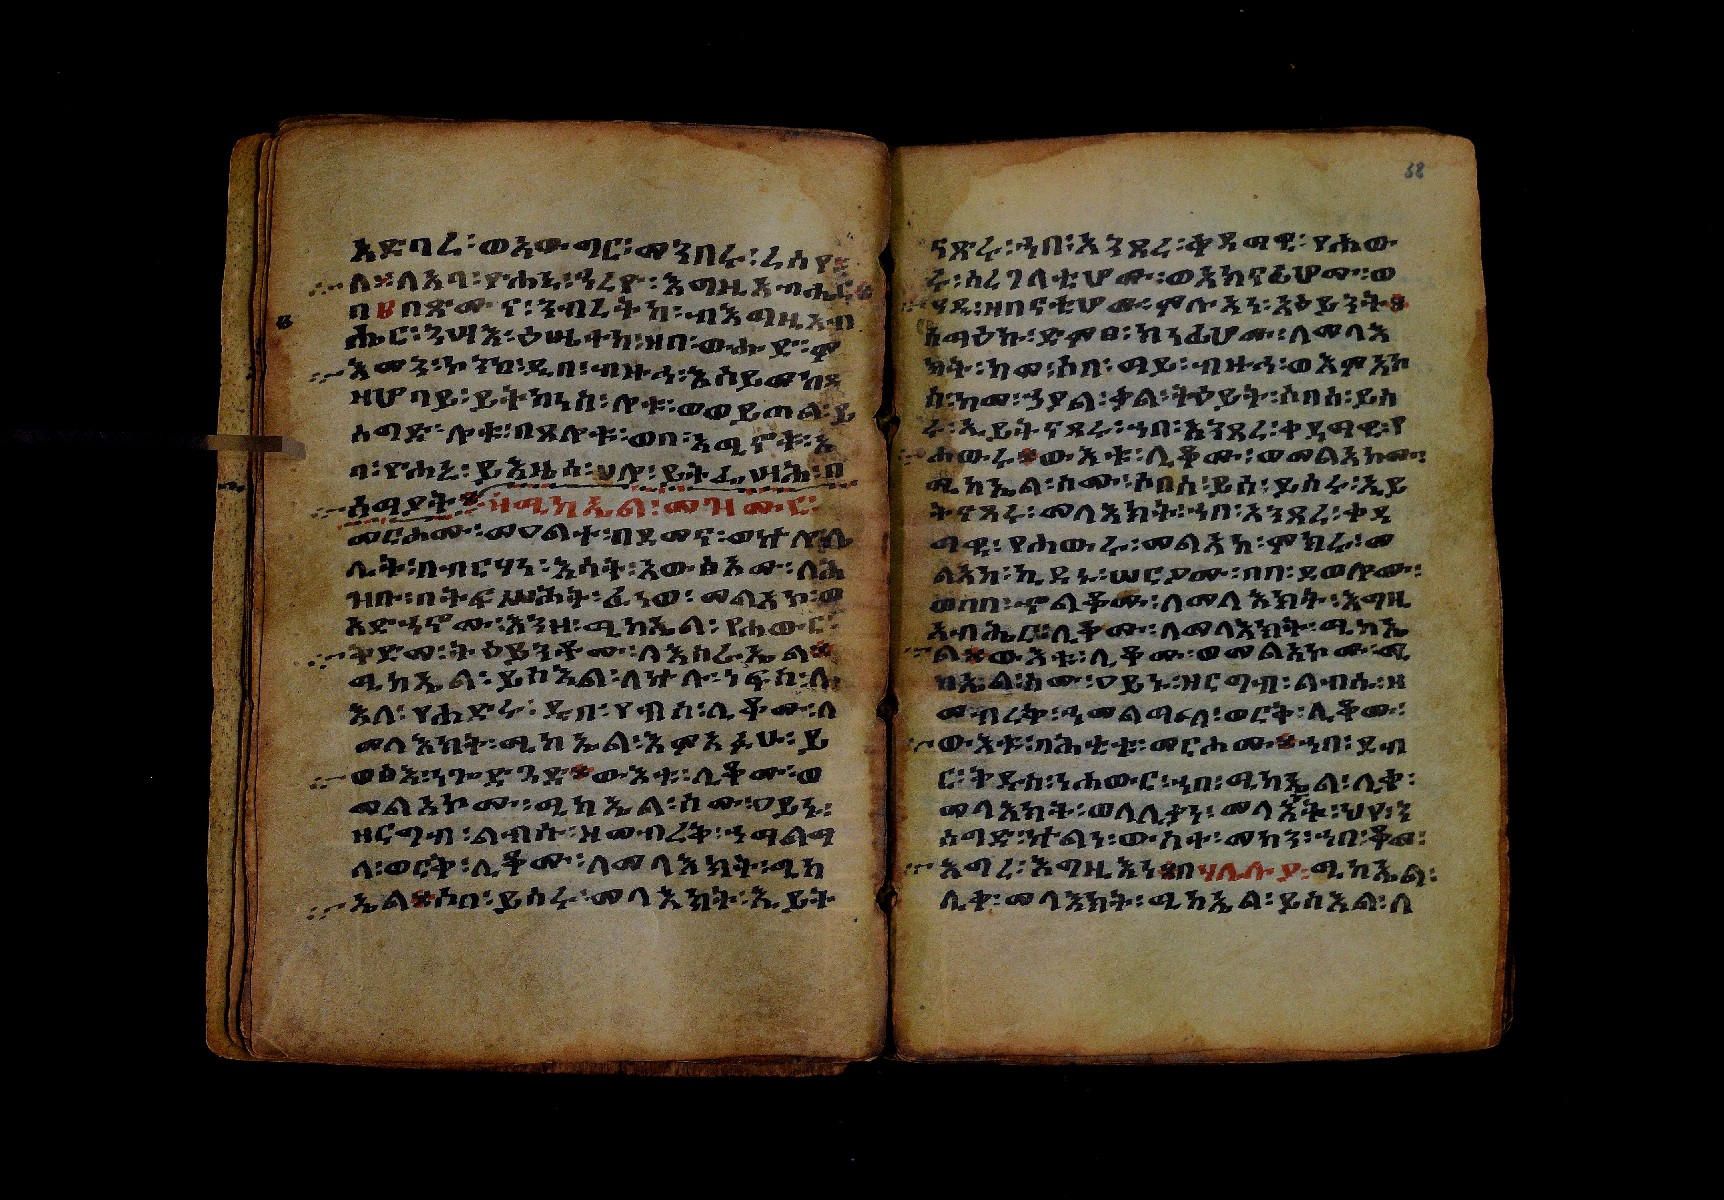 አድባረ፡ ወአውግር፡ መንበሩ፡ ረሰየ
ለ፡ ለአባ፡ ዮሐኒ፡ ኀረዮ፡ እግዚአብሔር
በ፩ በጽሙና፡ ንብረትከ፡ ብእግዚአብ
ሔር፡ ንሣእ፡ ዕሤተከ፡ ዘበ፡ ውሑድ፡ ም
እመን፡ ኮንከ፡ ዲበ፡ ብዙኅ፡ እሰይመከ
ዘሆ ባይ፡ ይትከነስ፡ ሎቱ፡ ወወይጠል፡ ይ
ሰግድ፡ ሎቱ፡ በጸሎቱ፡ ወበ፡ አሚኖቱ፡ አ
ባ፡ ዮሐኒ፡ ይእዜሰ፡ ሀሎ፡ ይትፌሣሕ፡ በ
ሰማያት፡ ዘሚካኤል፡ መዝሙር፡
መርሐሙ፡ መዐልተ፡ በደመና፡ ወኵሎ ሌ
ሊተ፡ በብርሃን፡ እሳት፡ አውፅአሙ፡ ለሕ
ዝቡ፡ በትፍሥሕት፡ ፊነወ፡ መልአኮ፡ ወ
አድኀኖሙ፡ እንዘ፡ ሚካኤል፡ የሐውር፡
ቅድመ፡ ትዕይንቶሙ፡ ለእስራኤል
ሚካኤል፡ ይስእል፡ ለኵሉ፡ ነፍስ፡ ለ
እለ፡ የሐድሩ፡ ዲበ፡ የብስ፡ ሊቆሙ፡ ለ
መላእክት፡ ሚካኤል፡ እምአፉሁ፡ ይ
ወፅእ፡ ነጐድጓድ፡ ውእቱ፡ ሊቆሙ፡ ወ
መልአኮሙ፡ ሚካኤል፡ ስሙ፡ ዐይኑ፡
ዘርግብ፡ ልብሱ፡ ዘመብረቅ፡ ኀመልማ
ለ፡ ወርቅ፡ ሊቆሙ፡ ለመላእክት፡ ሚካ
ኤል፡ ሶበ፡ ይሰሩ፡ መላእክት፡ ኢይት
ናጽሩ፡ ኀበ፡ አንጸረ፡ ቀዳማዊ፡ የሐው
ሩ፡ ሰረገላቲሆሙ፡ ወአክናፊሆሙ፡ ወ
ሃደ፡ ዘበናቲሆሙ፡ ምሉአን፡ አዕይንት
ሰማዕኩ፡ ድምፀ፡ ክነፊሆሙ፡ ለመላእ
ክት፡ ከመ፡ ሶበ፡ ማይ፡ ብዙኅ፡ ወእምአከ
ሰ፡ ከመ፡ ኀያል፡ ቃል፡ ትዕይት፡ ሶበሰ፡ ይሰ
ሩ፡ ኢይትናጸሩ፡ ኀበ፡ አንጸረ፡ ቀዳማዊ፡ የ
ሐውሩ ውእቱ፡ ሊቆሙ፡ ወመልአኮሙ፡
ሚካኤል፡ ስሙ፡ ሶበሰ፡ ይሰ፡ ይሰሩ፡ ኢይ
ትናጸሩ፡ መላእክት፡ ኀበ፡ አንጸረ፡ ቀዳ
ማዊ፡ የሐውሩ፡ መልአከ፡ ምክሩ፡ መ
ልአከ፡ ኪዳኑ፡ ሠርዖሙ፡ በበ፡ ደወሎሙ፡
ወበበ፡ ኆልቆሙ፡ ለመላእክት፡ እግዚ
አብሔር፡ ሊቆሙ፡ ለመላእክት፡ ሚካኤ
ል ውእቱ፡ ሊቆሙ፡ ወመልአኮሙ፡ ሚ
ካኤል፡ ስሙ፡ ዐይኑ፡ ዘርግብ፡ ልብሱ፡ ዘ
መብረቅ፡ ኀመልማለ፡ ወርቅ፡ ሊቆሙ፡
ውእቱ፡ በሕቲቱ፡ መርሐሙ፡ ኀበ፡ ደብ
ር፡ ቅዱስ፡ ንሐውር፡ ኀበ፡ ሚካኤል፡ ሊቀ፡
መላእክት፡ ወለሊሃነ፡ መላእት፡ ህየ፡ ን
ሰግድ፡ ኵልነ፡ ውስተ፡ መካን፡ ኀበ፡ ቆመ፡
እግረ፡ እግዚእነ በ ሃሌሉያ፡ ሚካኤል፡
ሊቀ፡ መላእክት፡ ሚካኤል፡ ይስእል፡ ለ